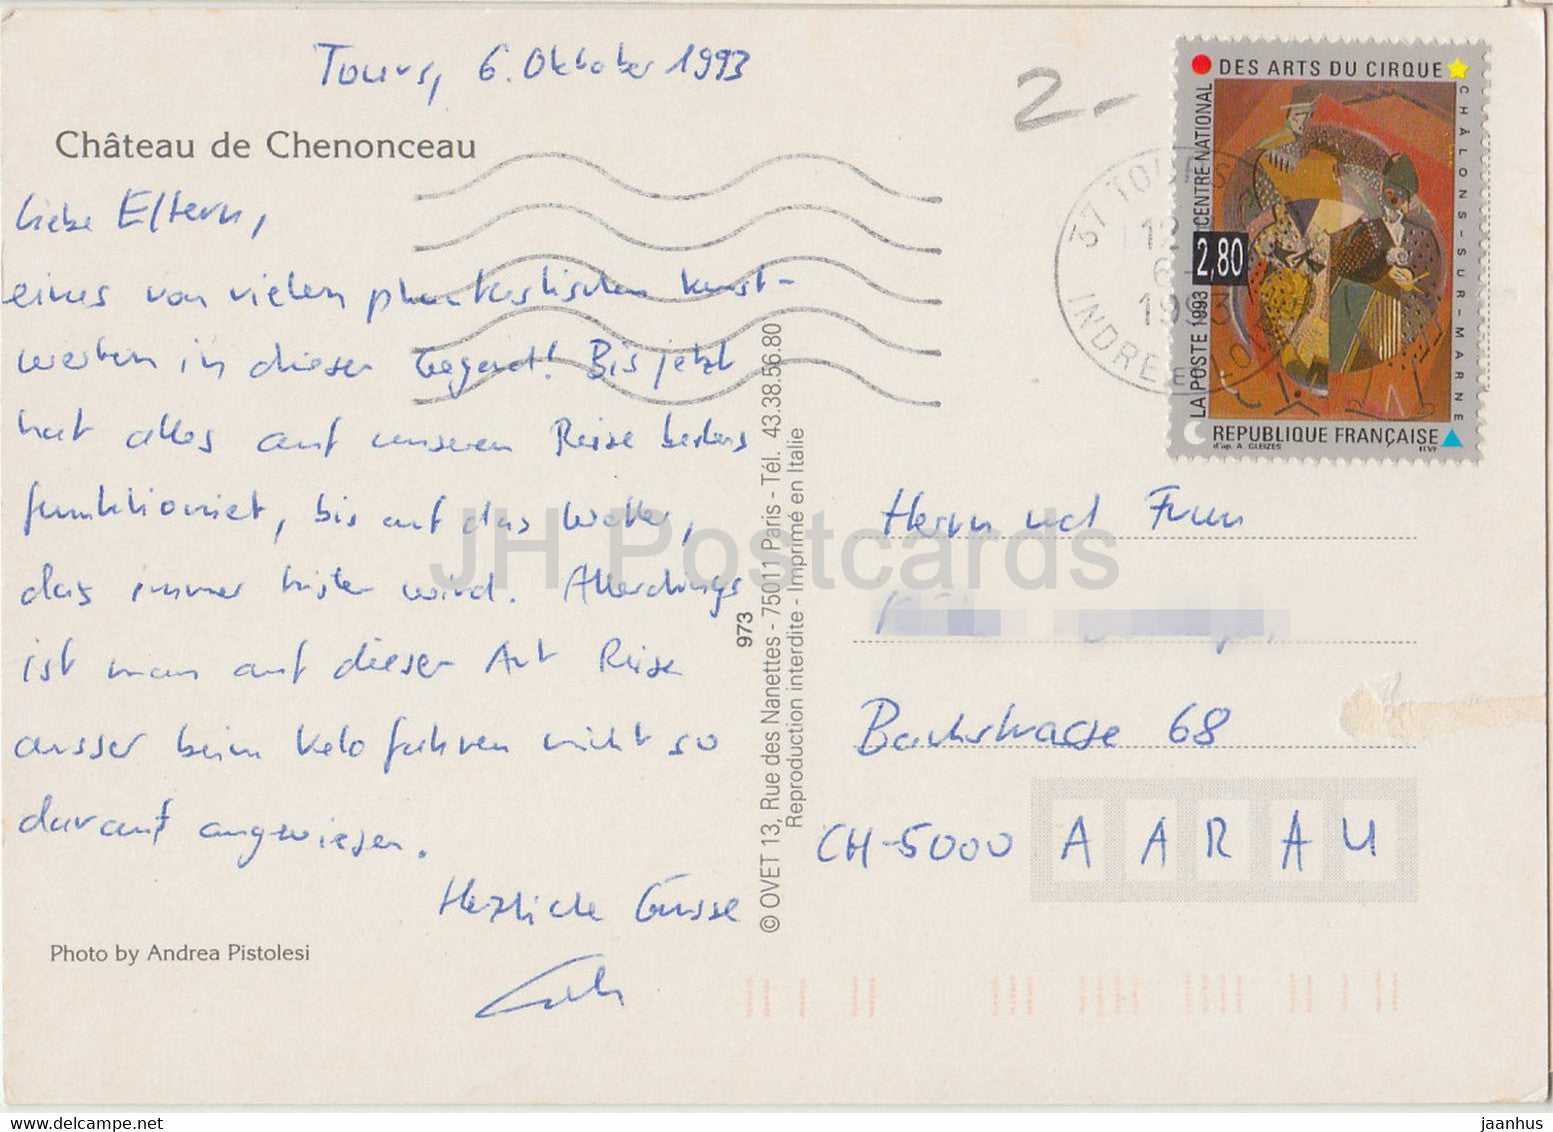 Tours, 6. Oktober 1993
Château de Chenonceau
Liebe Eltern,
eines von vielen phantastischen Kunst-
werken in dieser Gegend! Bis jetzt
hat alles auf unserer Reise bestens
funktioniert, bis auf das Wetter,
das immer trister wird. Allerdings
ist man auf dieser Art Reise
ausser beim Velofahren nicht so
darauf angewiesen.
Herzliche Grüsse
Photo by Andrea Pistolesi
973
© OVET 13, Rue des Nanettes - 75011 Paris - Tél. 43.38.56.80
Reproduction interdite - Imprimé en Italie
2.-
37 TOURS
6
1993
INDRE E LO
DES ARTS DU CIRQUE
CHÂLONS-SUR-MARNE
LA POSTE 1993
2,80
CENTRE NATIONAL
REPUBLIQUE FRANÇAISE
d'ap. A. GLEIZES
ITVF
Herrn und Frau
Bachstrasse 68
CH-5000 AARAU
JH Postcards
www.delcampe.net
jaanhus